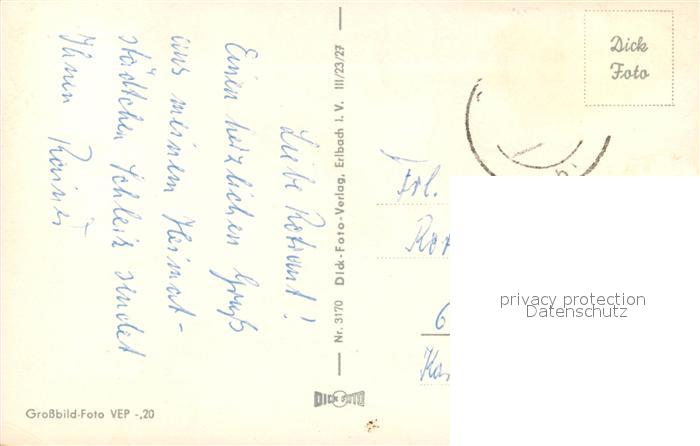 Liebe Rotraut!
Einen herzlichen Gruß
aus meinem Heimat-
städtchen Schleiz sendet
Ihnen Rainer
Großbild-Foto VEP -,20
Nr. 3170 Dick-Foto-Verlag, Erlbach i. V. III/23/27
DICK FOTO
Dick
Foto
Frl.
6
privacy protection
Datenschutz